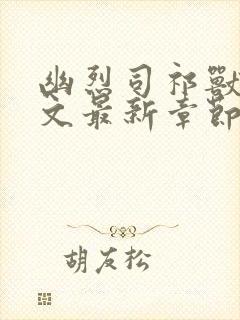 幽烈司祁獸
文最新章節
胡友松